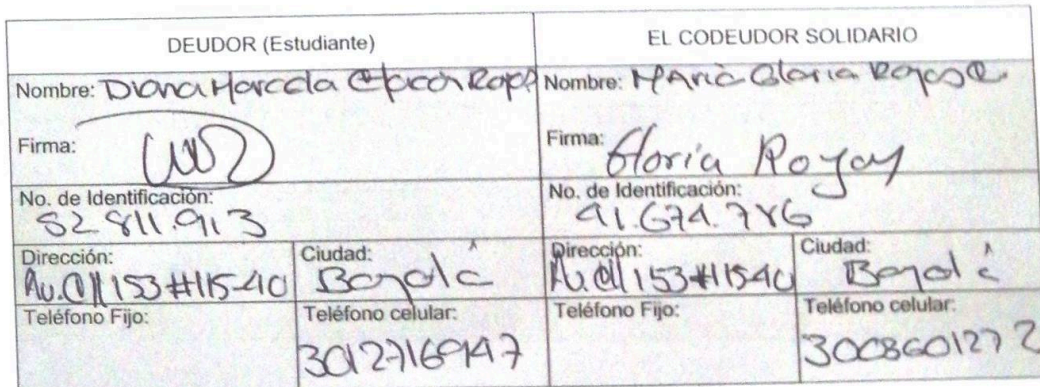 DEUDOR (Estudiante)
EL CODEUDOR SOLIDARIO
Nombre: Diana Marcela Chacón Rojas
Nombre: María Gloria Rojas C.
Firma:
Firma: Gloria Rojas
No. de Identificación:
52.811.913
No. de Identificación:
41.674.786
Dirección:
Av. Cll 153 #115-40
Ciudad:
Bogotá
Dirección:
Av. Cll 153 #115-40
Ciudad:
Bogotá
Teléfono Fijo:
Teléfono celular:
30127169147
Teléfono Fijo:
Teléfono celular:
3008601272